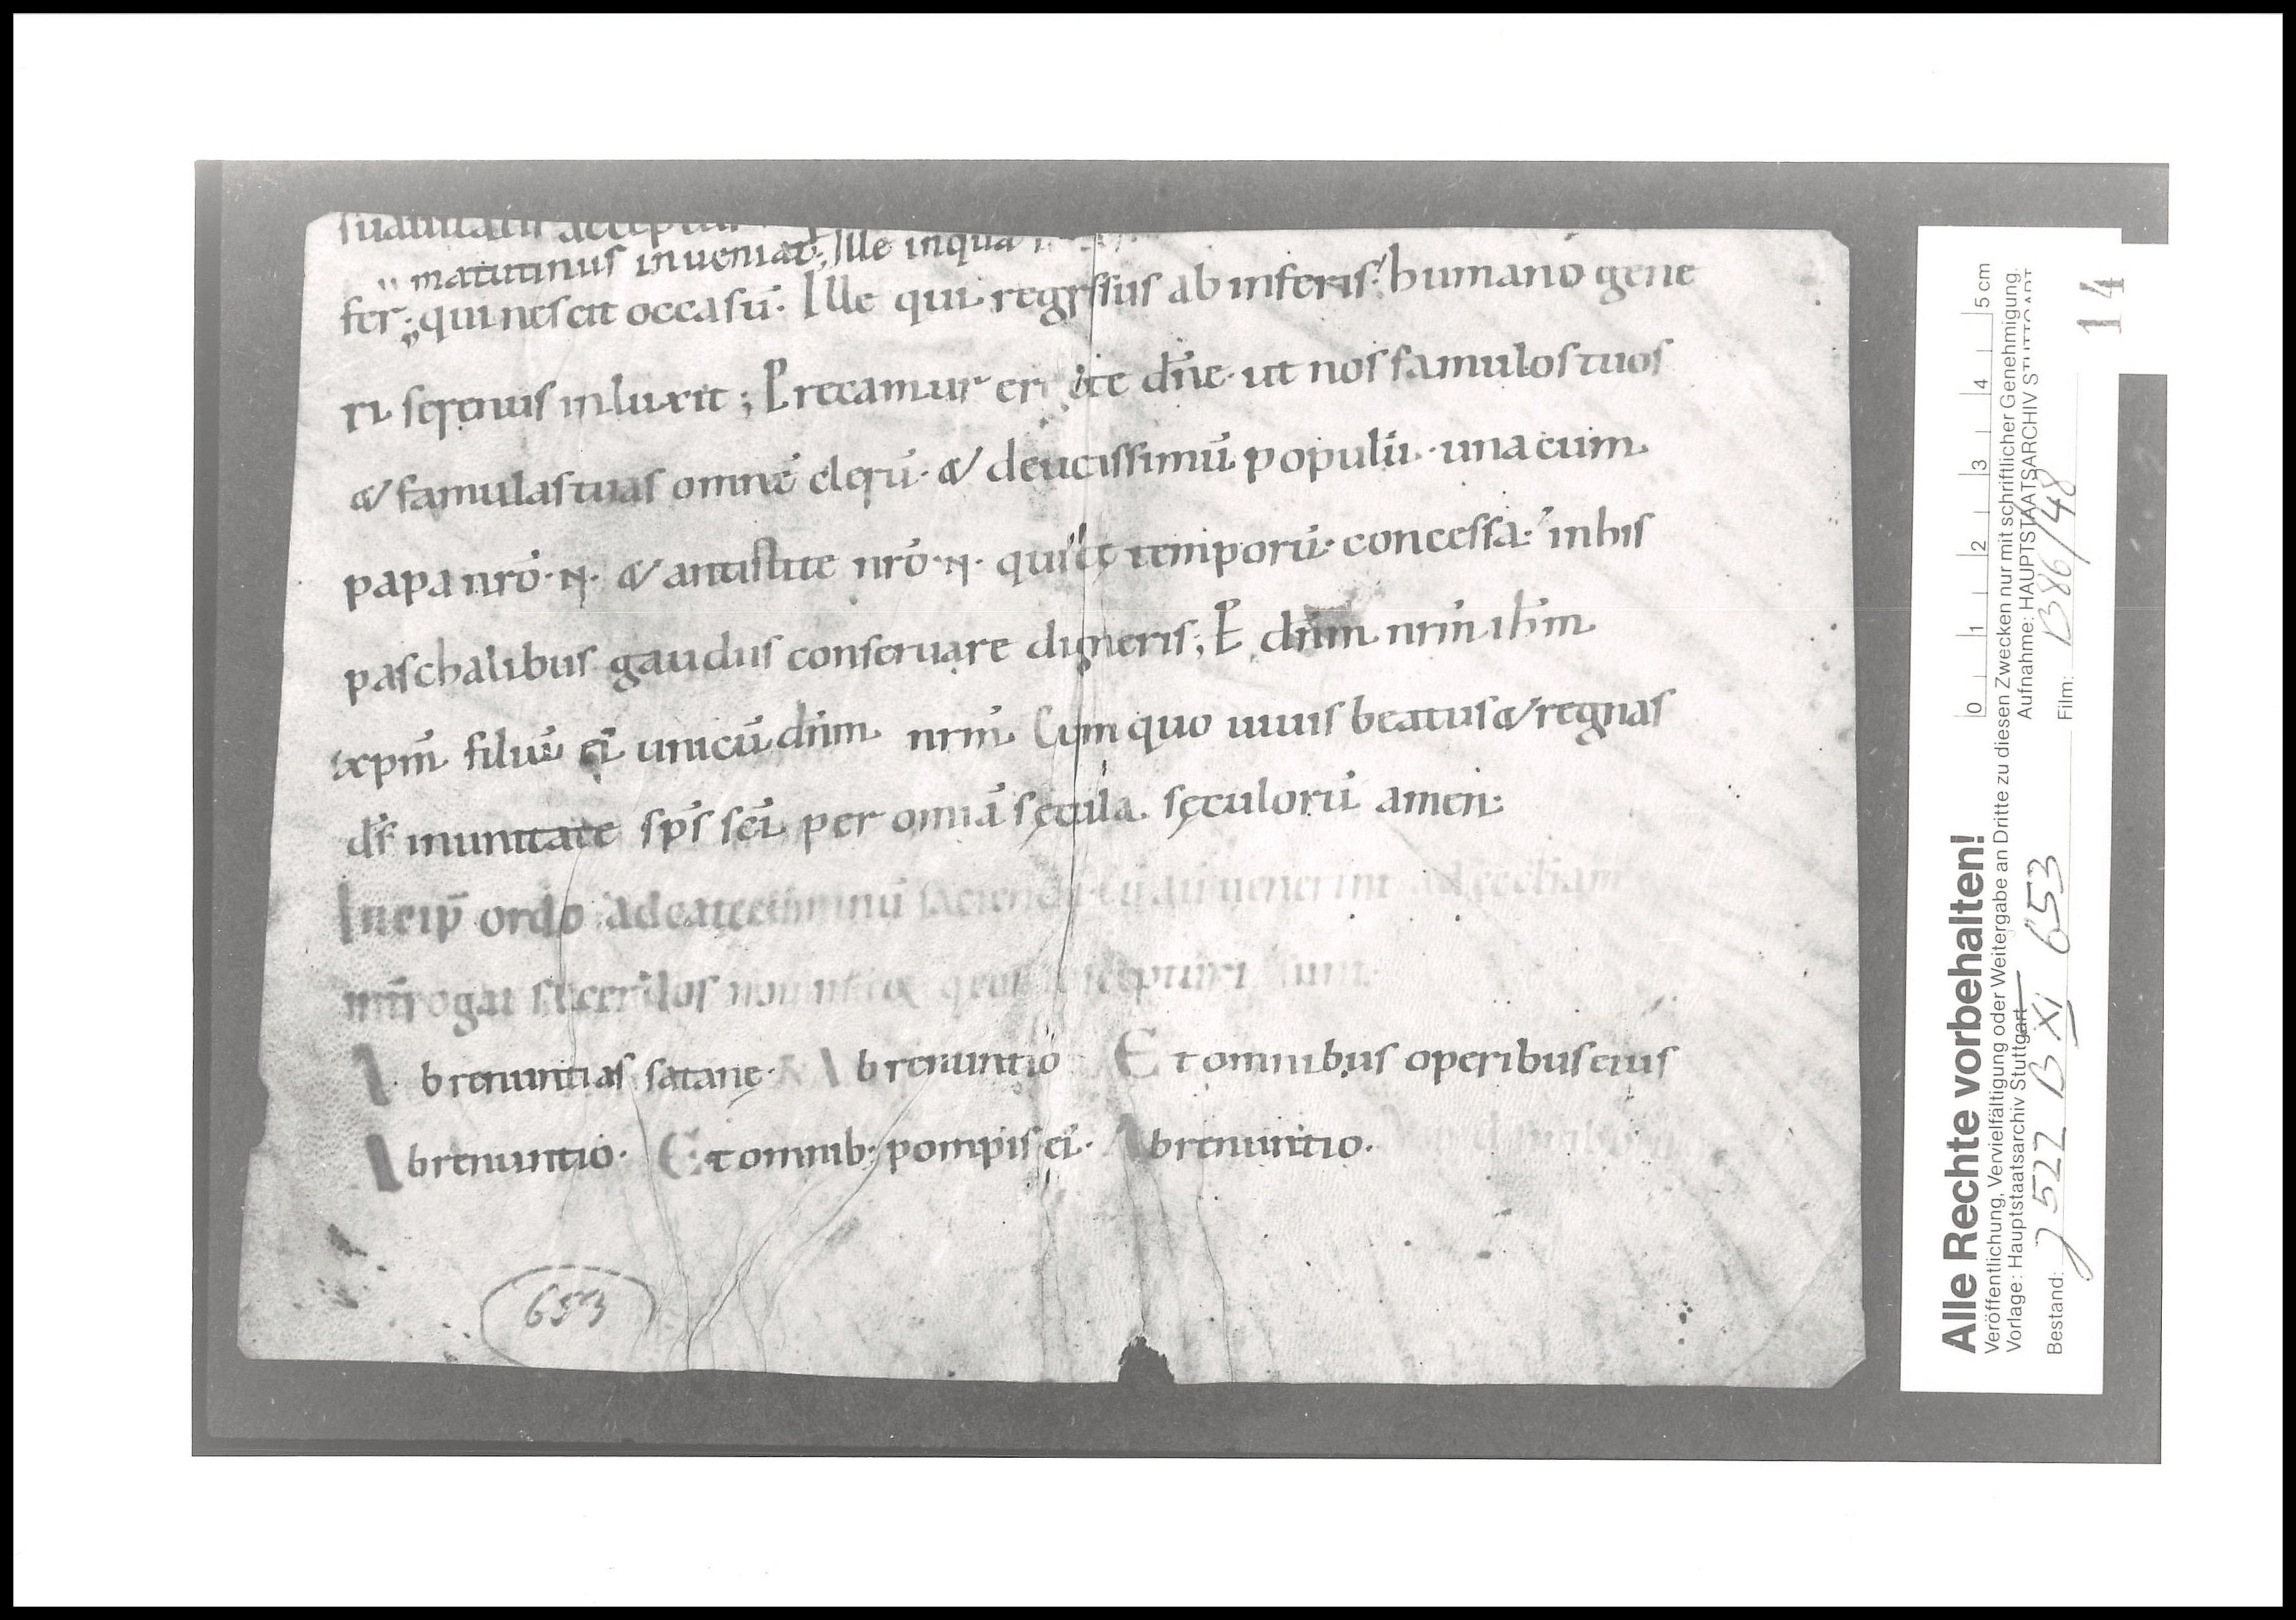 suauitatis accep
" matutinus inueniat; Ille inqua
fer; " qui nescit occasū. Ille qui regressus ab inferis humano gene
ri serenus inluxit; Precamur er te dn̄e ut nos famulos tuos
& famulas tuas omnē clerū. & deuotissimū populū. una cum
papa nrō .N. & antistite nrō .N. quiete temporū concessa. in his
paschalibus gaudiis conseruare digneris; P dn̄m nrm̄ ihm̄
xpm̄ filiū ei unicū dn̄m nrm̄ Cum quo uiuis beatus & regnas
ds̄ in unitate sps̄ sci per omiā sęcula sęculorū amen.
Incip̄ ordo ad caticuminū faciendū ad ęccliam
sacerdos sunt.
Abrenuntias satanę. R Abrenuntio Et omnibus operibus eius
Abrenuntio. Et omnib; pompis ei. Abrenuntio.
653
Alle Rechte vorbehalten!
Veröffentlichung, Vervielfältigung oder Weitergabe an Dritte zu diesen Zwecken nur mit schriftlicher Genehmigung.
Vorlage: Hauptstaatsarchiv Stuttgart Aufnahme: HAUPTSTAATSARCHIV STUTTGART
Bestand: J 522 B XI 653 Film: B86/48
0 1 2 3 4 5 cm
14